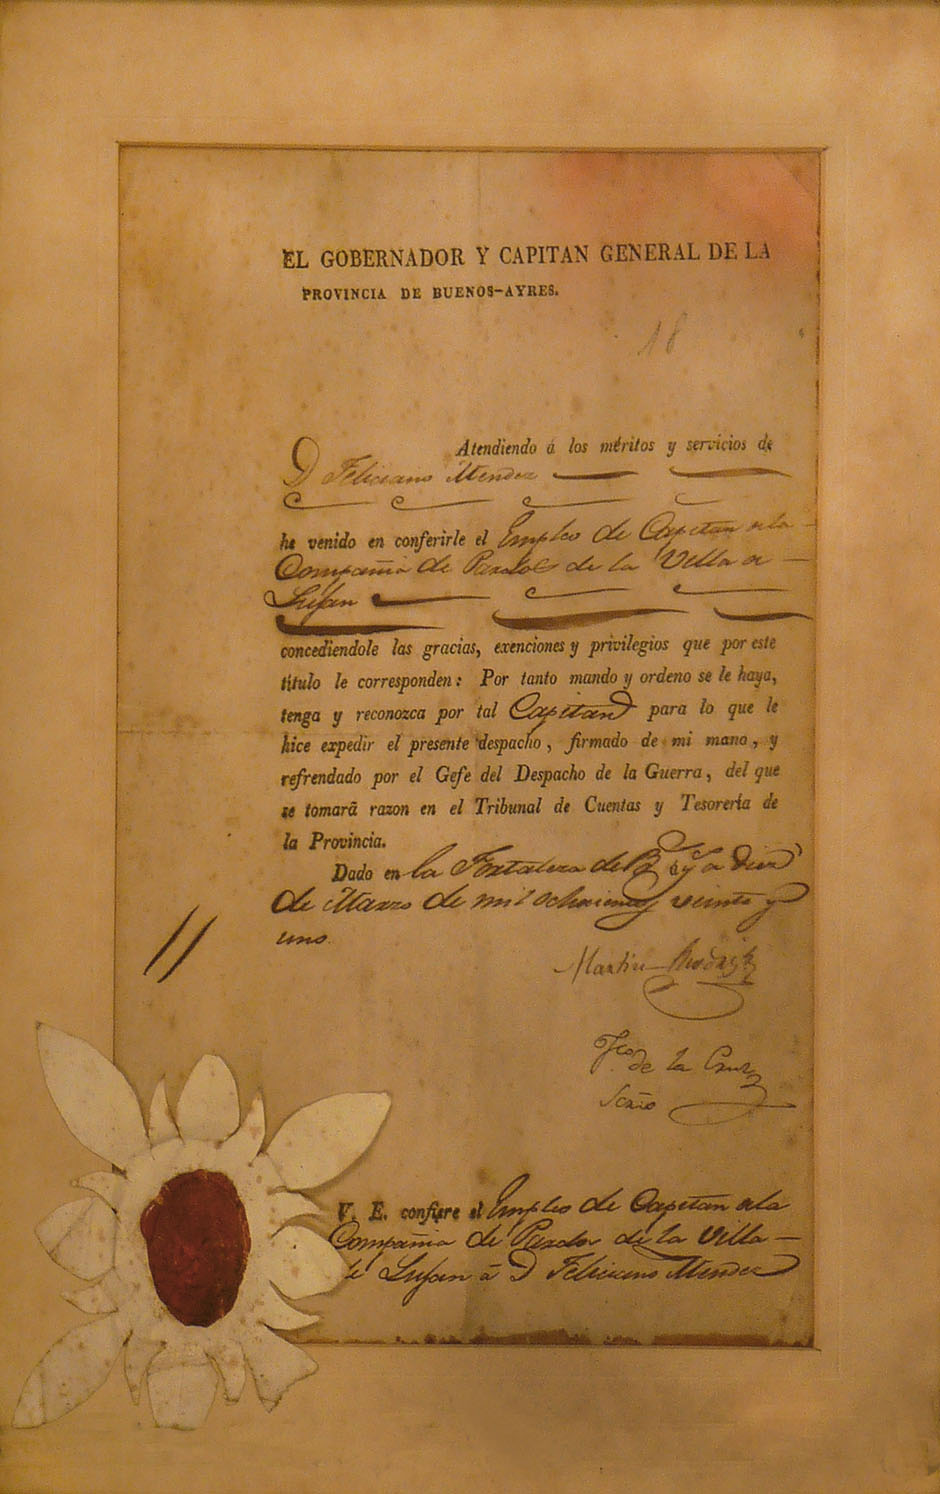 EL GOBERNADOR Y CAPITAN GENERAL DE LA
PROVINCIA DE BUENOS-AYRES.
18
Atendiendo á los méritos y servicios de
D Feliciano Mendez
he venido en conferirle el Empleo de Capitan de la
Compañia de Pardos de la Villa de
Lujan
concediendole las gracias, exenciones y privilegios que por este
título le corresponden: Por tanto mando y ordeno se le haya,
tenga y reconozca por tal Capitan para lo que le
hice expedir el presente despacho, firmado de mi mano, y
refrendado por el Gefe del Despacho de la Guerra, del que
se tomará razon en el Tribunal de Cuentas y Tesorería de
la Provincia.
Dado en la Fortaleza de Bs Ays a diez
de Marzo de mil ochocientos veinte y
uno.
Martin Rodrigz
Fco. de la Cruz
Scrio
V. E. confiere el Empleo de Capitan de la
Compañia de Pardos de la Villa
de Lujan á D Feliciano Mendez